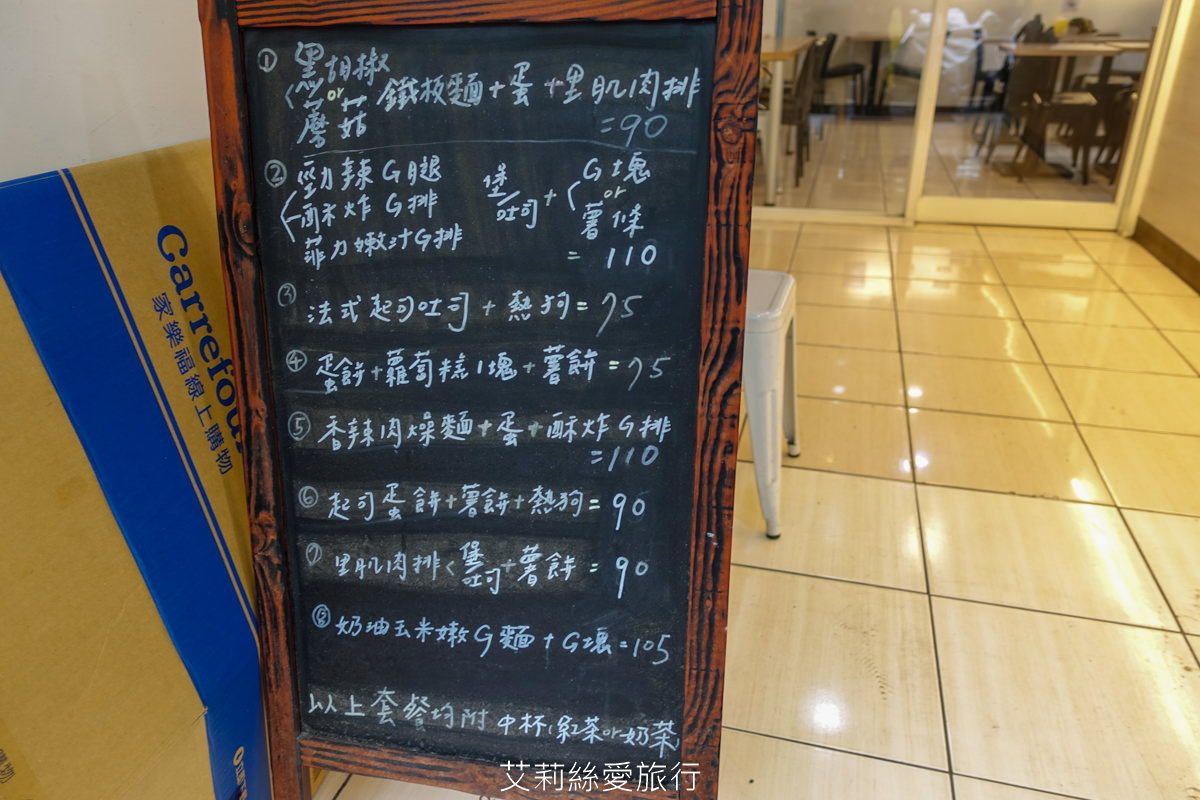 ① 黑胡椒
or
蘑菇
鐵板麵+蛋+里肌肉排
=90
② 勁辣G腿
酥炸G排
菲力嫩汁G排
堡/吐司 +
G塊
or
薯條
= 110
③ 法式起司吐司+熱狗=75
④ 蛋餅+蘿蔔糕1塊+薯餅=75
⑤ 香辣肉燥麵+蛋+酥炸G排
=110
⑥ 起司蛋餅+薯餅+熱狗=90
⑦ 里肌肉排<堡/吐司+薯餅=90
⑧ 奶油玉米嫩G麵+G塊=105
以上套餐均附 中杯(紅茶or奶茶)
Carrefour
家樂福線上購物
艾莉絲愛旅行